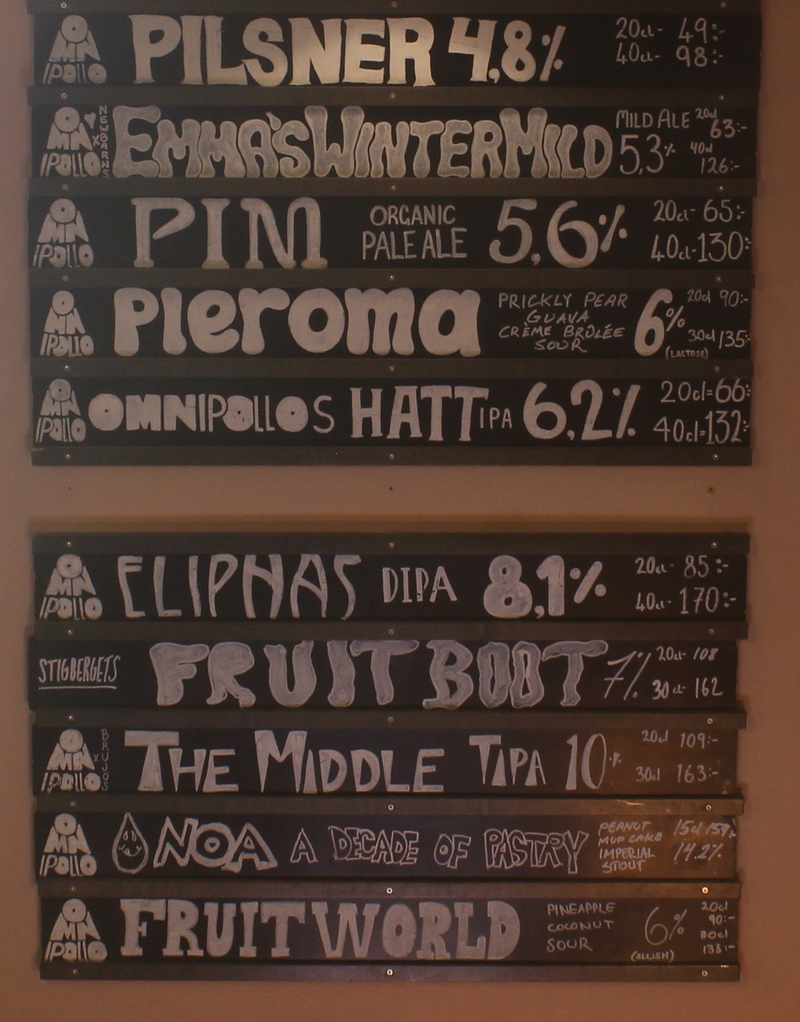 OMNIPOLLO PILSNER 4,8% 20cl- 49:-
40cl- 98:-
OMNIPOLLO X NEWBARNS EMMA'S WINTER MILD MILD ALE 5,3% 20cl 63:-
40cl 126:-
OMNIPOLLO PIM ORGANIC PALE ALE 5,6% 20cl- 65:-
40cl- 130:-
OMNIPOLLO Pleroma PRICKLY PEAR
GUAVA
CRÈME BRÛLÉE
SOUR
6% (LACTOSE)
20cl 90:-
30cl 135:-
OMNIPOLLO OMNIPOLLOS HATT IPA 6,2% 20cl=66:-
40cl=132:-
OMNIPOLLO ELIPHAS DIPA 8,1% 20cl- 85:-
40cl- 170:-
STIGBERGETS FRUIT BOOT 7% 20cl- 108
30cl- 162
OMNIPOLLO X BRUJOS THE MIDDLE TIPA 10% 20cl 109:-
30cl 163:-
OMNIPOLLO NOA A DECADE OF PASTRY PEANUT
MUD CAKE
IMPERIAL
STOUT
15cl 159:-
14.2%
OMNIPOLLO FRUIT WORLD PINEAPPLE
COCONUT
SOUR
6%
20cl
90:-
30cl
135:-